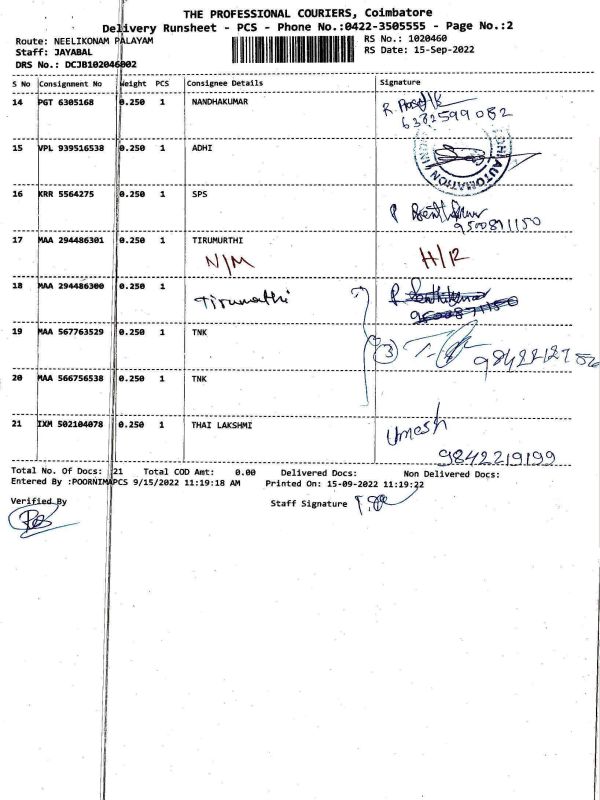 THE PROFESSIONAL COURIERS, Coimbatore
Delivery Runsheet - PCS - Phone No.:0422-3505555 - Page No.:2
Route: NEELIKONAM PALAYAM
RS No.: 1020460
Staff: JAYABAL
RS Date: 15-Sep-2022
DRS No.: DCJB102046002
S No Consignment No Weight PCS Consignee Details Signature
14 PGT 6305168 0.250 1 NANDHAKUMAR
6382599082
15 VPL 939516538 0.250 1 ADHI
AUTOMATION
16 KRR 5564275 0.250 1 SPS
9500871150
17 MAA 294486301 0.250 1 TIRUMURTHI
N/M H/R
18 MAA 294486300 0.250 1 Tirumathi
9500871150
19 MAA 567763529 0.250 1 TNK
3
20 MAA 566756538 0.250 1 TNK
21 IXM 502104078 0.250 1 THAI LAKSHMI Umesh
9842219199
Total No. Of Docs: 21 Total COD Amt: 0.00 Delivered Docs: Non Delivered Docs:
Entered By :POORNIMAPCS 9/15/2022 11:19:18 AM Printed On: 15-09-2022 11:19:22
Verified By
Staff Signature